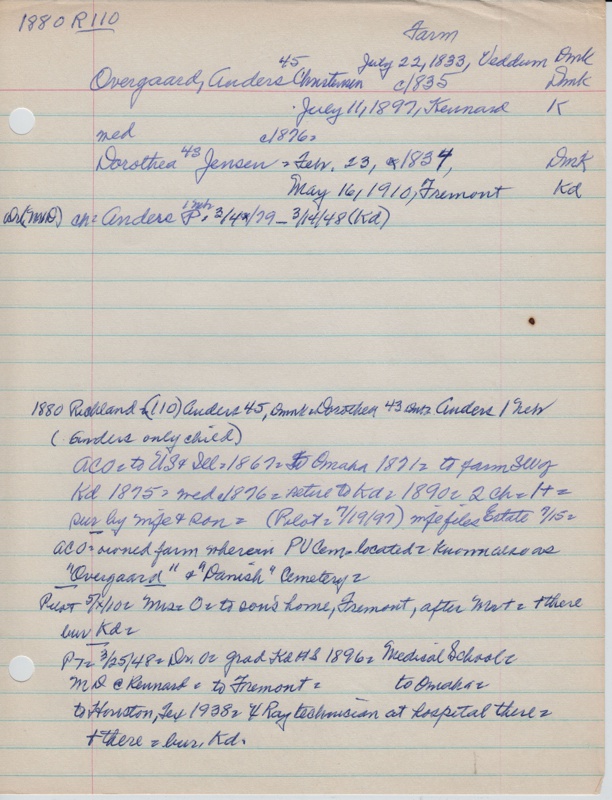 1880 R110
Farm
45 July 22, 1833, Veddum Dmk
Overgaard, Anders Christensen c1835 Dmk
July 11, 1897, Kennard K
med c1876=
Dorothea 43 Jensen = Feb. 23, 1834, Dmk
May 16, 1910, Fremont Kd
(M.D.) ch= Anders P. 1 neb, 3/4/79 - 3/14/48 (Kd)
1880 Richland = (110) Anders 45, Dmk = Dorothea 43 Dmk = Anders 1 Neb
(Anders only child)
ACO = to US & Ill = 1867 = to Omaha 1871 = to farm SW of
Kd 1875 = med c1876 = retire to Kd = 1890 = 2 ch = 1+ =
sur by wife & son = (Pilot = 7/19/97) wife files Estate 7/15 =
ACO = owned farm wherein PV Cem = located = known also as
"Overgaard" & "Danish" Cemetery =
Pilot 5/ /10 = Mrs = O = to son's home, Fremont, after = + there
bur Kd =
PT = 3/25/48 = Dr. O = grad Kd HS 1896 = Medical School =
MD @ Kennard = to Fremont = to Omaha =
to Houston, Tex 1938 = X Ray technician at hospital there =
+ there = bur, Kd.